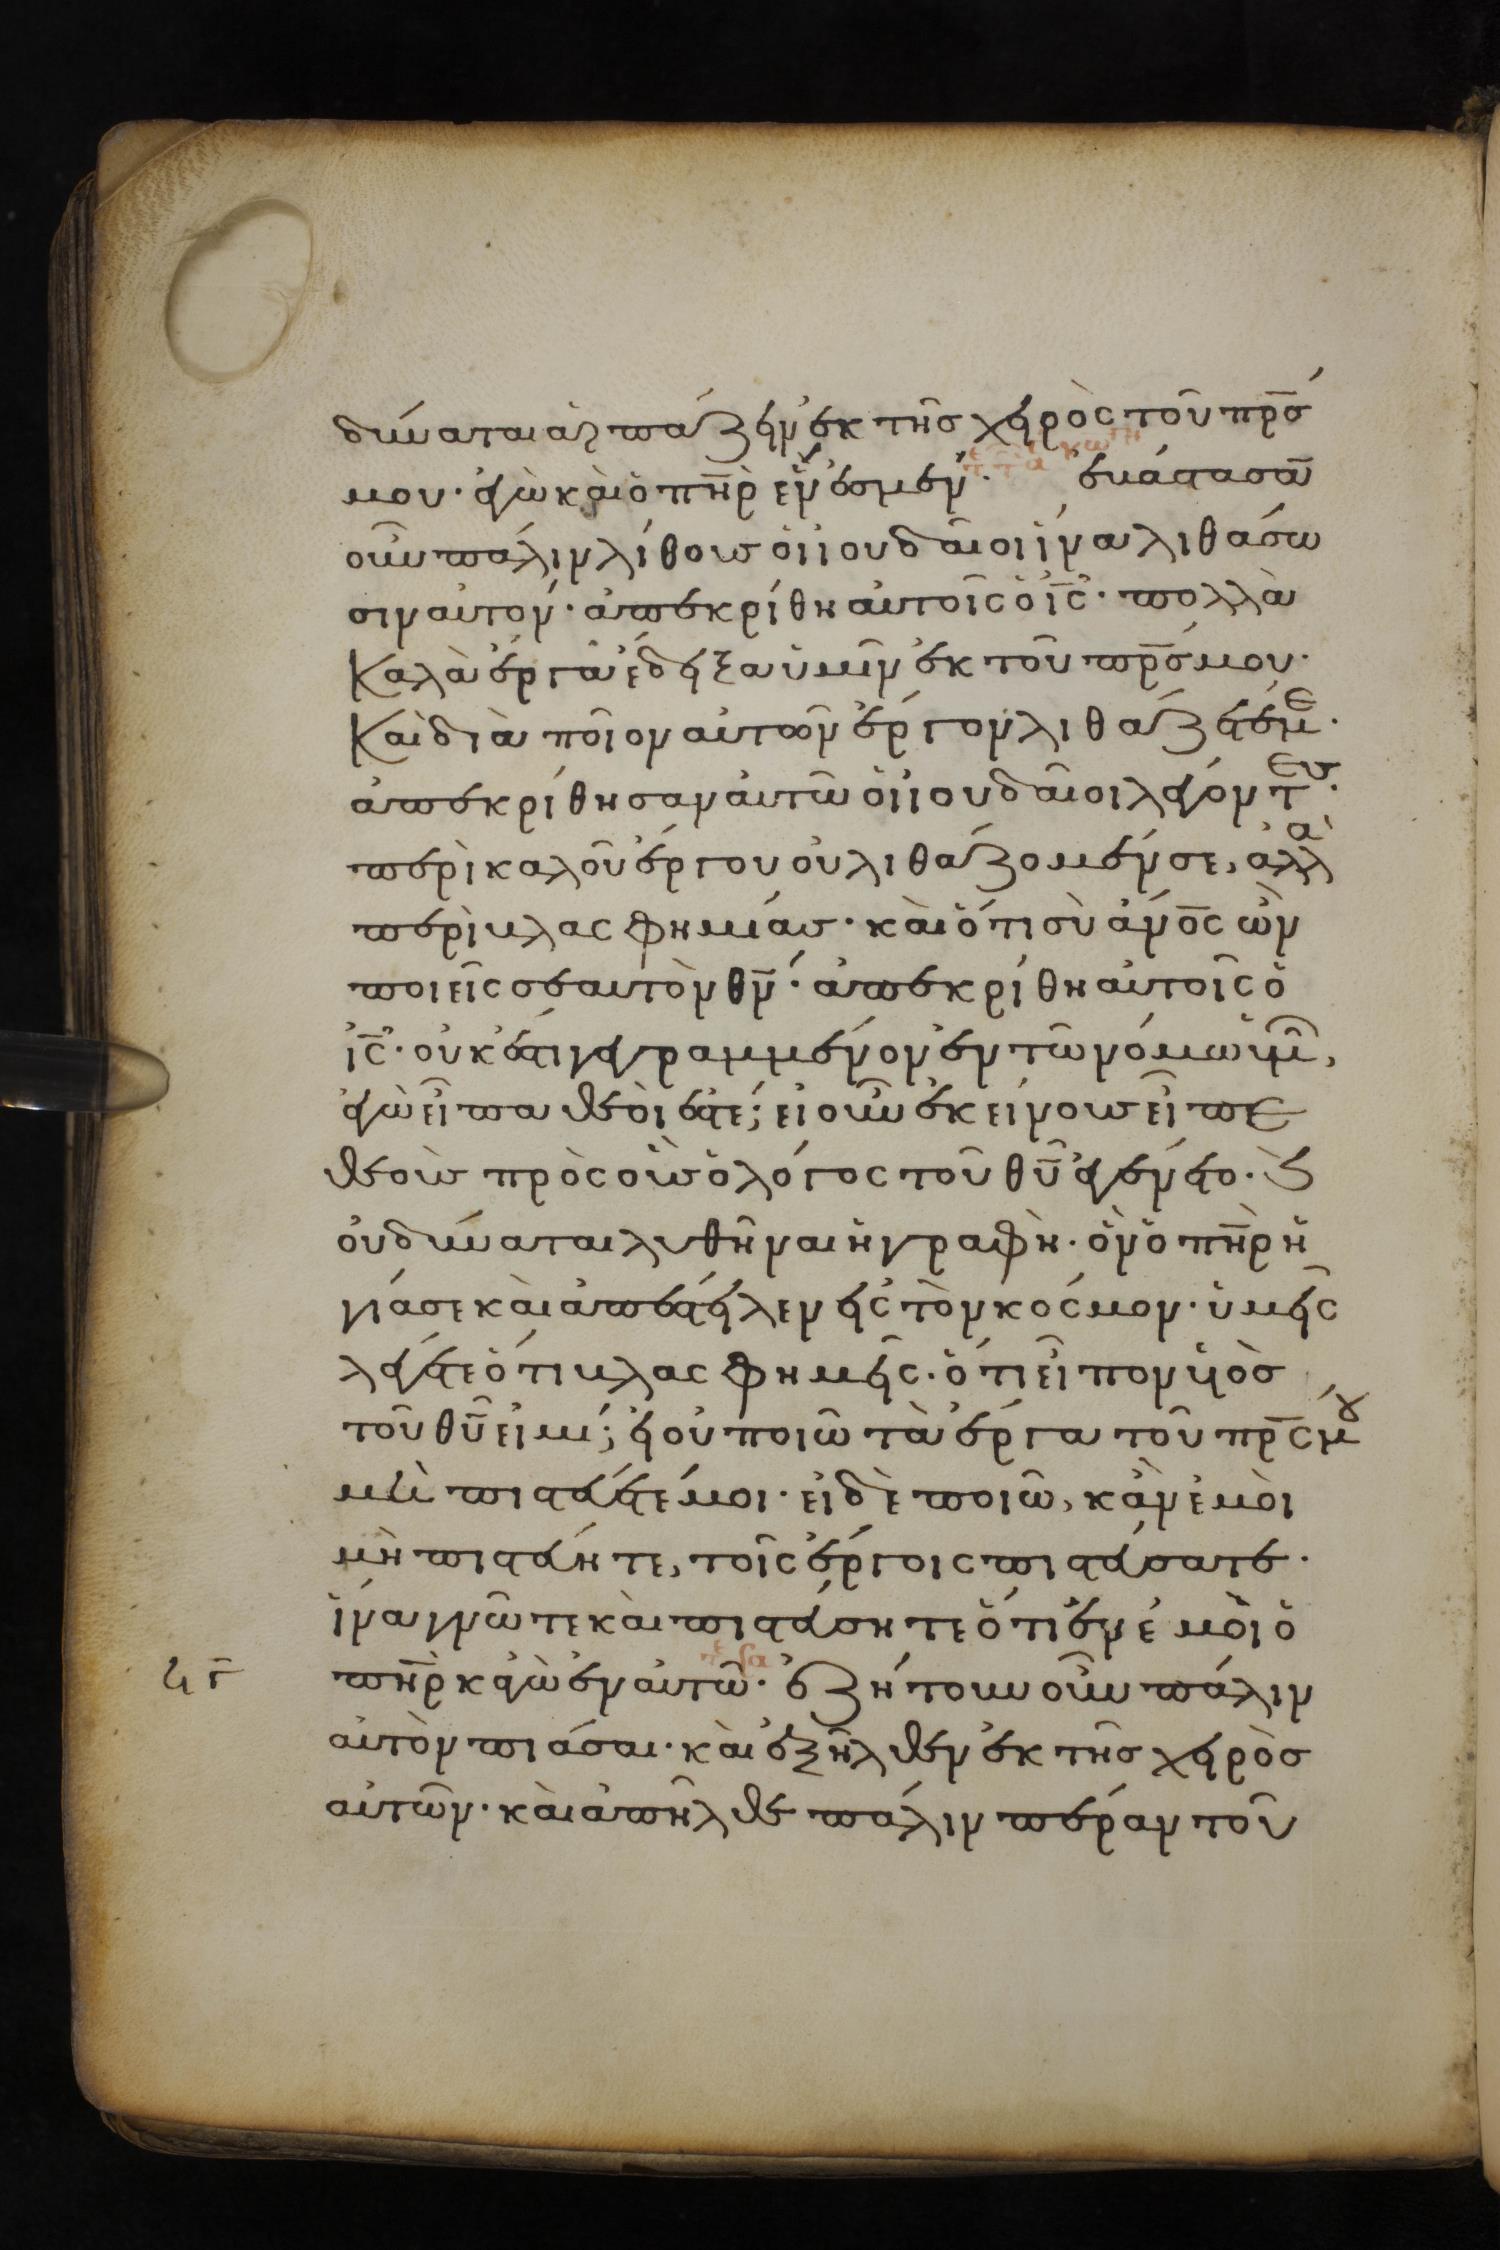 δύναται ἁρπάζειν ἐκ τῆς χειρὸς τοῦ πρ̅σ
μου· ἐγὼ καὶ ὁ πη̅ρ ἕν ἐσμεν· ἐβάστασα̅
οὖν πάλιν λίθους οἱ ἰουδαῖοι ἵνα λιθάσω
σιν αὐτόν· ἀπεκρίθη αὐτοῖς ὁ ι̅ς· πολλὰ
καλὰ ἔργα ἔδειξα ὑμῖν ἐκ τοῦ πρ̅ς μου·
καὶ διὰ ποῖον αὐτῶν ἔργον λιθάζετέ με·
ἀπεκρίθησαν αὐτῶ οἱ ἰουδαῖοι λέγοντες·
περὶ καλοῦ ἔργου οὐ λιθάζομέν σε, ἀλλὰ
περὶ βλασφημίας· καὶ ὅτι σὺ ἄν̅ος ὢν
ποιεῖς σεαυτὸν θν̅· ἀπεκρίθη αὐτοῖς ὁ
ι̅ς· οὐκ ἔστι γεγραμμένον ἐν τῶ νόμω ὑμῶ̅,
ἐγὼ εἶπα θεοί ἐστε; εἰ οὖν ἐκείνους εἶπε
θεοὺς πρὸς οὓς ὁ λόγος τοῦ θυ̅ ἐγένετο· ϗ
οὐ δύναται λυθῆναι ἡ γραφὴ· ὃν ὁ πη̅ρ ἡ
γίασε καὶ ἀπέστειλεν εἰς τὸν κόσμον· ὑμεῖς
λέγετε ὅτι βλασφημεῖς· ὅτι εἶπον υἱὸς
τοῦ θυ̅ εἰμι; εἰ οὐ ποιῶ τὰ ἔργα τοῦ πρ̅ς μου
μὴ πιστεύετέ μοι· εἰ δὲ ποιῶ, κἂν ἐμοὶ
μὴ πιστεύητε, τοῖς ἔργοις πιστεύσατε·
ἵνα γνῶτε καὶ πιστεύσητε ὅτι ἐν ἐμοὶ ὁ
πη̅ρ κἀγὼ ἐν αὐτῶ· ἐζήτουν οὖν πάλιν
αὐτὸν πιάσαι· καὶ ἐξῆλθεν ἐκ τῆς χειρὸς
αὐτῶν· καὶ ἀπῆλθε πάλιν πέραν τοῦ